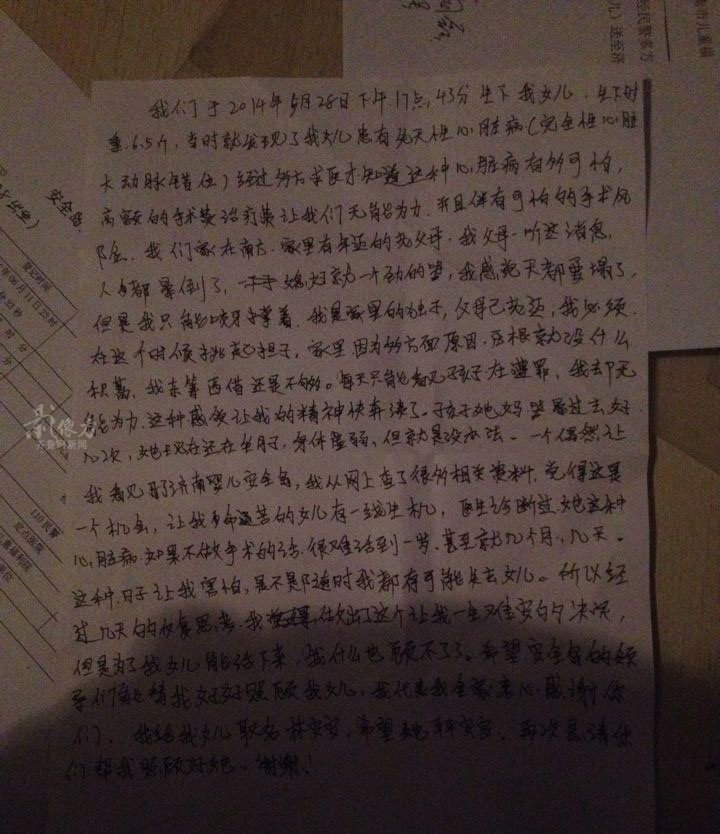 我们于2014年5月28日下午.17点,43分生下我女儿.生下时
重.6.5斤,当时就发现了我女儿患有先天性心脏病(完全性心脏
大动脉错位)经过多方求医才知道这种心脏病有多可怕,
高额的手术费治疗费让我们无能为力.并且伴有可怕的手术风
险.我们家在南方.家里有年迈的老父母.我父母一听这消息,
人都晕倒了,媳妇就一个劲的哭,我感觉天都要塌了,
但是我只能咬牙撑着.我是家里的独子,父母已老迈,我必须
在这个时候挑起担子,家里因为多方面原因.压根就没什么
积蓄,我东筹西借还是不够。每天只能看见孩子在遭罪,我却无
能为力.这种感受让我的精神快奔溃了.孩子她妈哭晕过去好
几次,她现在还在坐月,身体虚弱、但就是没办法。一个偶然让
我看见了济南婴儿安全岛,我从网上查了很多相关资料,觉得这是
一个机会,让我命运苦的女儿有一线生机,医生诊断过.她这种
心脏病如果不做手术的话.很难活到一岁.甚至就几个月,几天。
这种.日子让我害怕,是不是随时我都有可能失去女儿。所以经
过几天的反复思考.我做出了这个让我一生难安的决定,
但是为了我女儿能活下来,我什么也顾不了了。希望安全岛的领
导们能替我好好照顾我女儿,我代表我全家衷心感谢你
们.我给我女儿取名林安安,希望她平平安安.再次恳请你
们帮我照顾好她.谢谢!
安全岛
登记时间
110民警
儿童福利院
经民警多方
儿)送至济
市儿童福
影像者
齐鲁网新闻